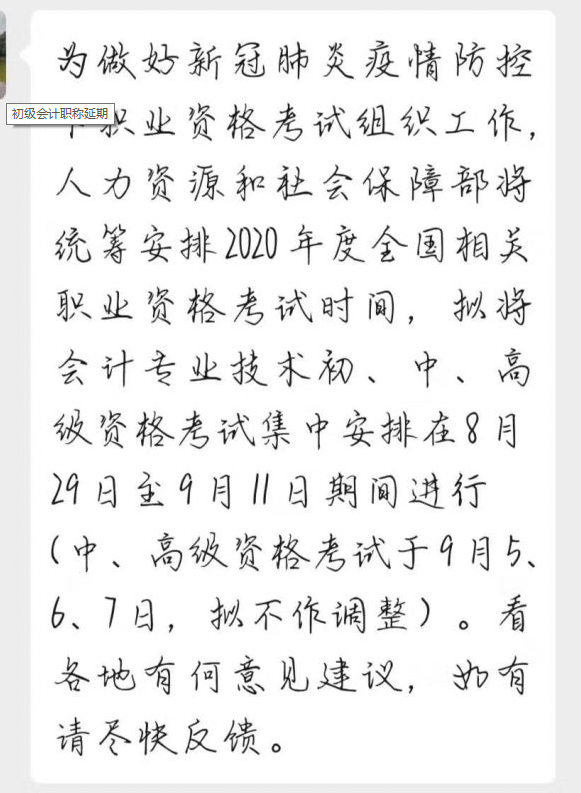 为做好新冠肺炎疫情防控
初级会计职称延期
下职业资格考试组织工作,
人力资源和社会保障部将
统筹安排2020年度全国相关
职业资格考试时间，拟将
会计专业技术初、中、高
级资格考试集中安排在8月
29日至9月11日期间进行
(中、高级资格考试于9月5、
6、7日，拟不作调整)。看
各地有何意见建议，如有
请尽快反馈。